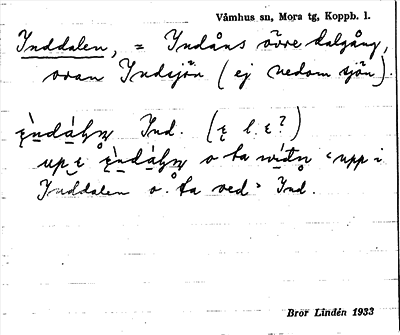 Våmhus sn, Mora tg, Koppb. l.
Inddalen, = Indåns övre dalgång,
ovan Indsjön (ej nedom sjön).
Ind. (ę l. ę?)
o ta "upp i
Inddalen o. ta ved" Ind.
Bror Lindén 1933